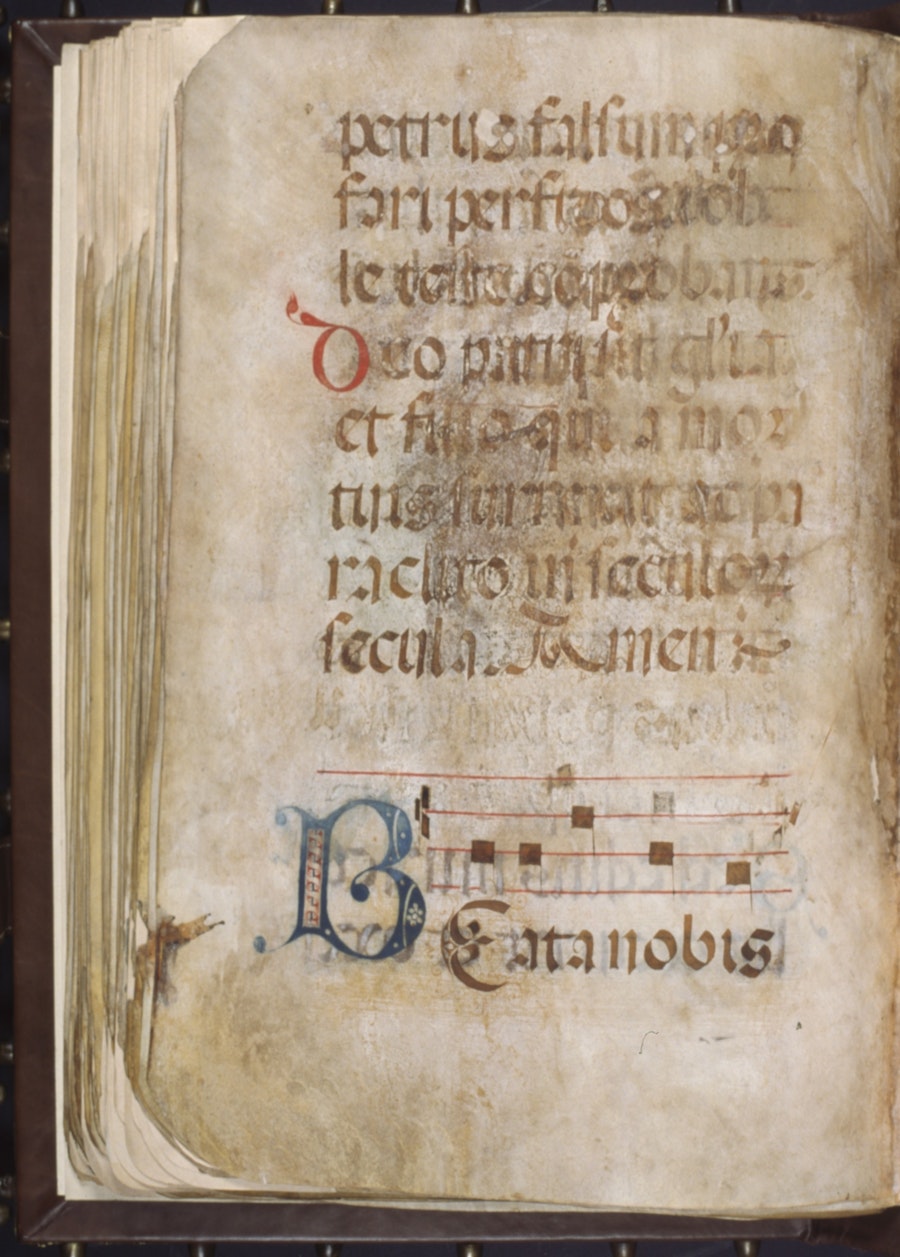 petrus falsum pro
fari perfidos
le
Deo patri sit gl'ia
et filio qui a mor
tuis surrexit ac pa
raclito in seculor
secula. Amen
BEata nobis